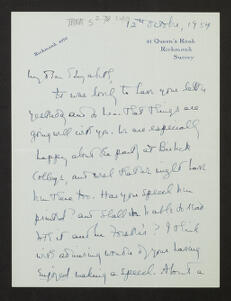 12th October, 1954
Richmond
21 Queen's Road
Richmond
Surrey
My dear Elizabeth,
It was lovely to have your letter
yesterday and to hear that things are
going well with you. We are especially
happy about the party at
College, and wish that we might have
been there too. Has your speech been
printed? and shall we be able to read
it? I think
with admiring wonder of your having
enjoyed making a speech. About a